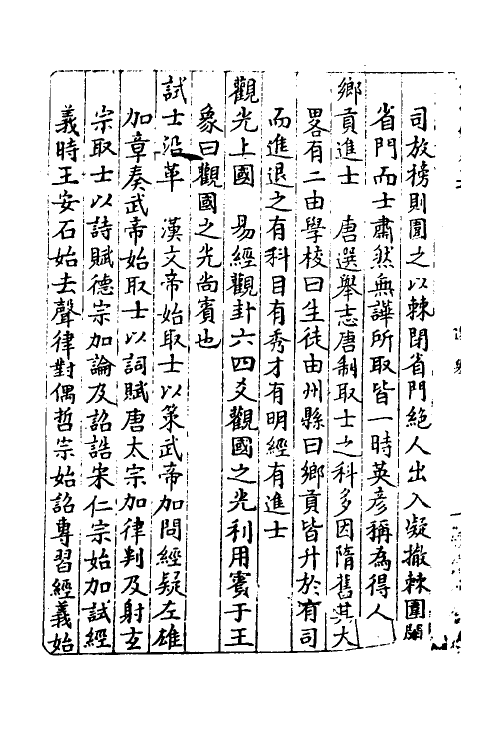 司放榜則圍之以棘閉省門絕人出入凝撤棘圍闢
省門而士肅然無譁所取皆一時英彦稱為得人
鄉貢進士　唐選舉志唐制取士之科多因隋舊其大
畧有二由學校曰生徒由州縣曰鄉貢皆升於有司
而進退之有科目有秀才有明經有進士
觀光上國　易經觀卦六四爻觀國之光利用賓于王
象曰觀國之光尚賓也
試士沿革　漢文帝始取士以策武帝加問經疑左雄
加章奏武帝始取士以詞賦唐太宗加律判及射玄
宗取士以詩賦德宗加論及詔誥宋仁宗始加試經
義時王安石始去聲律對偶哲宗始詔專習經義始